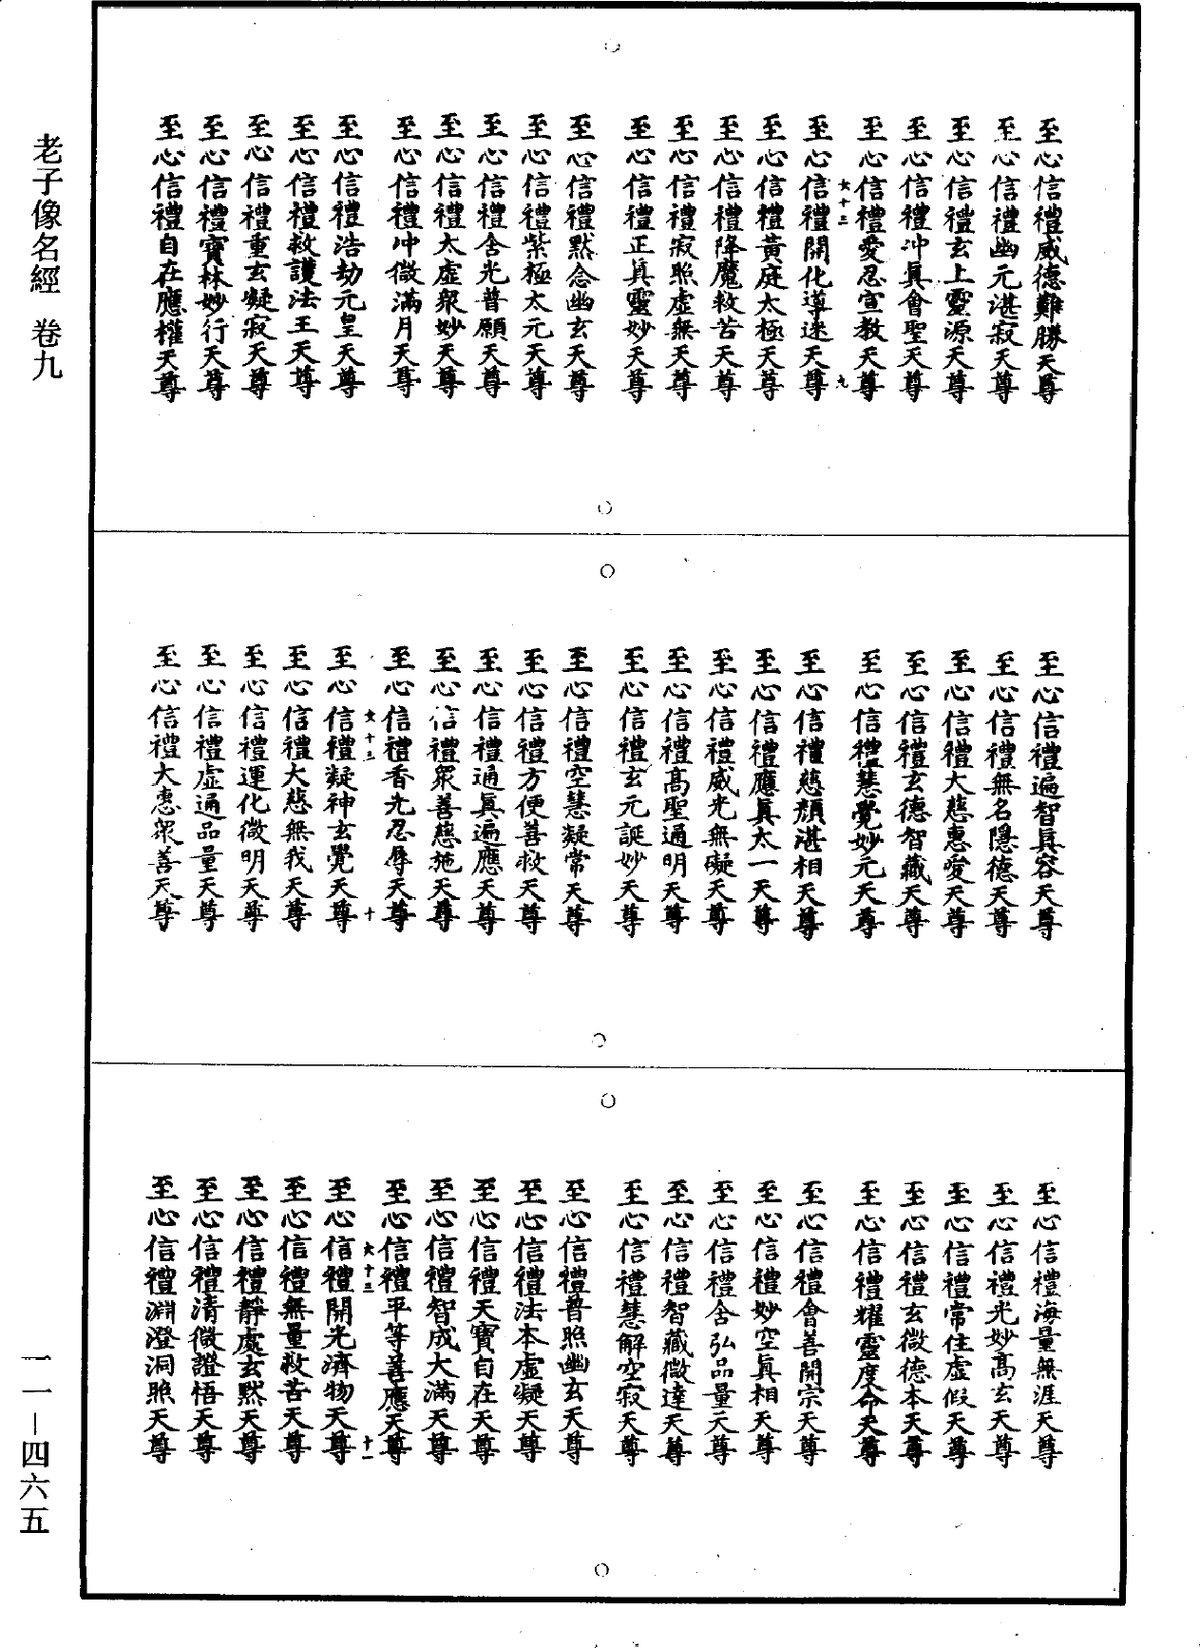 至心信禮威德難勝天尊
至心信禮幽元湛寂天尊
至心信禮玄上靈源天尊
至心信禮沖眞會聖天尊
至心信禮愛忍宣教天尊
至心信禮開化導迷天尊
至心信禮黃庭太極天尊
至心信禮降魔救苦天尊
至心信禮寂照虛無天尊
至心信禮正眞靈妙天尊
至心信禮默念幽玄天尊
至心信禮紫極太元天尊
至心信禮含光普願天尊
至心信禮太虛眾妙天尊
至心信禮沖微滿月天尊
至心信禮浩劫元皇天尊
至心信禮救護法王天尊
至心信禮重玄凝寂天尊
至心信禮寶林妙行天尊
至心信禮自在應權天尊
至心信禮遍智眞容天尊
至心信禮無名隱德天尊
至心信禮大慈惠愛天尊
至心信禮玄德智藏天尊
至心信禮慧覺妙元天尊
至心信禮慈顏湛相天尊
至心信禮應眞太一天尊
至心信禮威光無礙天尊
至心信禮高聖通明天尊
至心信禮玄元誕妙天尊
至心信禮空慧凝常天尊
至心信禮方便善救天尊
至心信禮通眞遍應天尊
至心信禮眾善慈施天尊
至心信禮香光忍辱天尊
至心信禮凝神玄覺天尊
至心信禮大慈無我天尊
至心信禮運化微明天尊
至心信禮虛通品量天尊
至心信禮大惠眾善天尊
至心信禮海量無涯天尊
至心信禮光妙高玄天尊
至心信禮常住虛假天尊
至心信禮玄微德本天尊
至心信禮耀靈度命天尊
至心信禮會善開宗天尊
至心信禮妙空眞相天尊
至心信禮含弘品量天尊
至心信禮智藏微達天尊
至心信禮慧解空寂天尊
至心信禮普照幽玄天尊
至心信禮法本虛凝天尊
至心信禮天寶自在天尊
至心信禮智成大滿天尊
至心信禮平等善應天尊
至心信禮開光濟物天尊
至心信禮無量救苦天尊
至心信禮靜處玄默天尊
至心信禮清微證悟天尊
至心信禮淵澄洞照天尊
老子像名經 卷九
一一—四六五